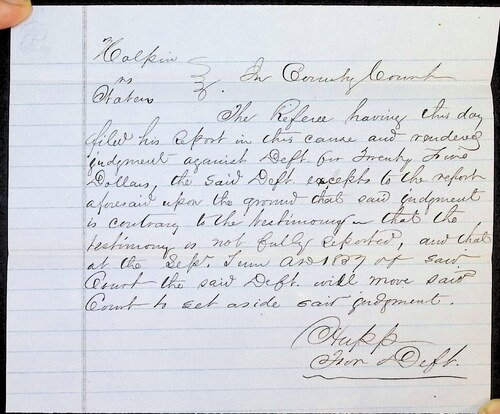 Halpin
vs In County Court
Staten
The Referee having this day
filed his report in this cause and rendered
judgment against Deft. for Twenty Five
Dollars, the said Deft. excepts to the report
aforesaid upon the ground that said judgment
is contrary to the testimony - that the
testimony is not fully reported, and that
at the Sept. Term AD 1857 of said
Court the said Deft. will move said
Court to set aside said judgment.
Hupp
for Deft.